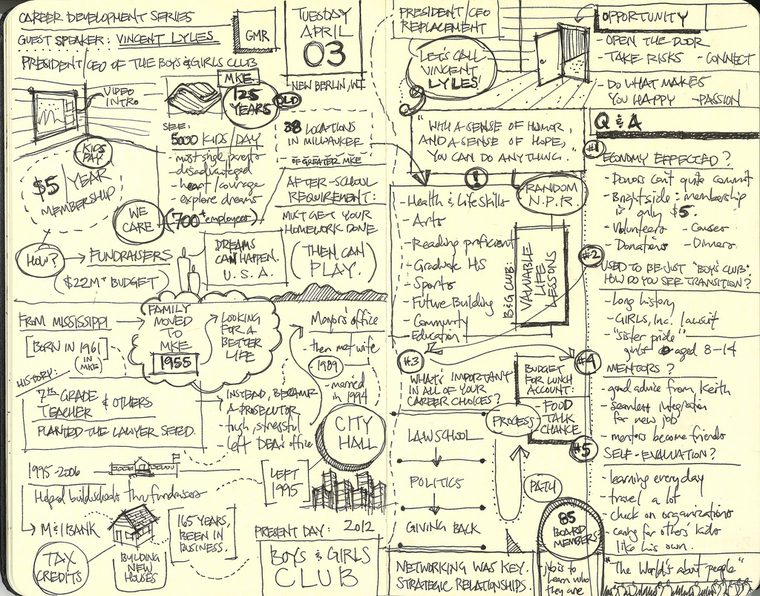 CAREER DEVELOPMENT SERIES
GUEST SPEAKER: VINCENT LYLES
PRESIDENT/CEO OF THE BOYS & GIRLS CLUB
GMR
TUESDAY
APRIL
03
NEW BERLIN, WI
VIDEO
INTRO
MKE
125
YEARS
OLD
KIDS
PAY
$5/YEAR
MEMBERSHIP
SEE:
5000 KIDS/DAY
disadvantaged
heart/courage
explore dreams
38 LOCATIONS
IN MILWAUKEE
OF GREATER MKE
AFTER-SCHOOL
REQUIREMENT:
MUST GET YOUR
HOMEWORK DONE
(THEN CAN
PLAY.)
WE
CARE
(700+ employees)
HOW?
FUNDRAISERS
($22M+ BUDGET)
DREAMS
CAN HAPPEN.
U.S.A.
FROM MISSISSIPPI
[BORN IN 1961
IN MKE]
FAMILY
MOVED
TO
MKE
1955
LOOKING
FOR A
BETTER
LIFE
Mayor's office
- then met wife
1989
- married
in 1994
HISTORY:
7TH GRADE & OTHERS
TEACHER
PLANTED THE LAWYER SEED.
INSTEAD, BECAME
A PROSECUTOR
- high stressful
- left DEA's office
CITY
HALL
LEFT
1995
1995-2006
Helped build schools thru fundraisers
M&I BANK
TAX
CREDITS
BUILDING
NEW
HOUSES
165 YEARS,
BEEN IN
BUSINESS.
PRESENT DAY: 2012
BOYS & GIRLS
CLUB
PRESIDENT/CEO
REPLACEMENT
LET'S CALL
VINCENT
LYLES!
OPPORTUNITY
- OPEN THE DOOR
- TAKE RISKS - CONNECT
- DO WHAT MAKES
YOU HAPPY - PASSION
"WITH A SENSE OF HUMOR,
AND A SENSE OF HOPE,
YOU CAN DO ANYTHING."
1
RANDOM
N.P.R.
- Health & Life Skills
- Arts
- Reading proficient
- Graduate HS
- Sports
- Future Building
- Community
- Education
B&G CLUB
VALUABLE
LIFE
LESSONS
#3
WHAT'S IMPORTANT
IN ALL OF YOUR
CAREER CHOICES?
LAW SCHOOL
POLITICS
GIVING BACK
NETWORKING WAS KEY.
STRATEGIC RELATIONSHIPS.
BUDGET
FOR LUNCH
ACCOUNT:
- FOOD
TALK
CHANGE
PROCESS
PATH
85
BOARD
MEMBERS
Job is
to learn who
they are
Q & A
#1
ECONOMY EFFECTED?
- Donors can't quite commit
- Bright side: membership
is only $5.
- Volunteers
- Donations - Dinners
#2
USED TO BE JUST "BOYS CLUB".
HOW DO YOU SEE TRANSITION?
- Long history
- GIRLS, Inc. lawsuit
- "sister pride"
girls aged 8-14
#4
MENTORS?
- good advice from Keith
- seamless integration
for new job
- mentors become friends
#5
SELF-EVALUATION?
- learning everyday
- travel a lot
- check on organizations
- caring for others' kids
like his own.
"The World's about people"